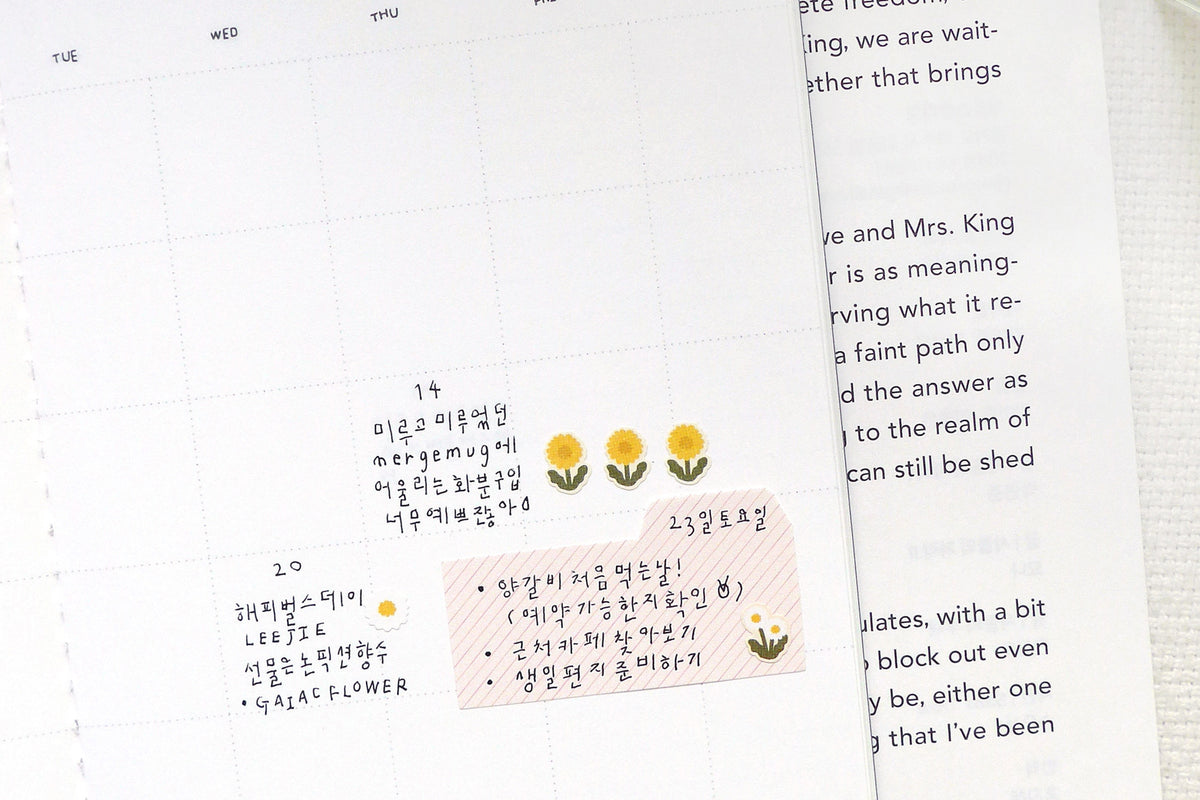 TUE
WED
THU
14
미루고 미루었던
mergemug에
어울리는 화분구입
너무 예쁘잖아
20
해피벌스데이
LEEJIE
선물은 논픽션향수
• GAIAC FLOWER
23일 토요일
• 양갈비 처음 먹는날!
(예약가능한지확인)
• 근처 카페 찾아보기
• 생일 편지 준비하기
we are wait-
that brings
and Mrs. King
is as meaning-
what it re-
a faint path only
the answer as
to the realm of
can still be shed
with a bit
block out even
be, either one
that I've been